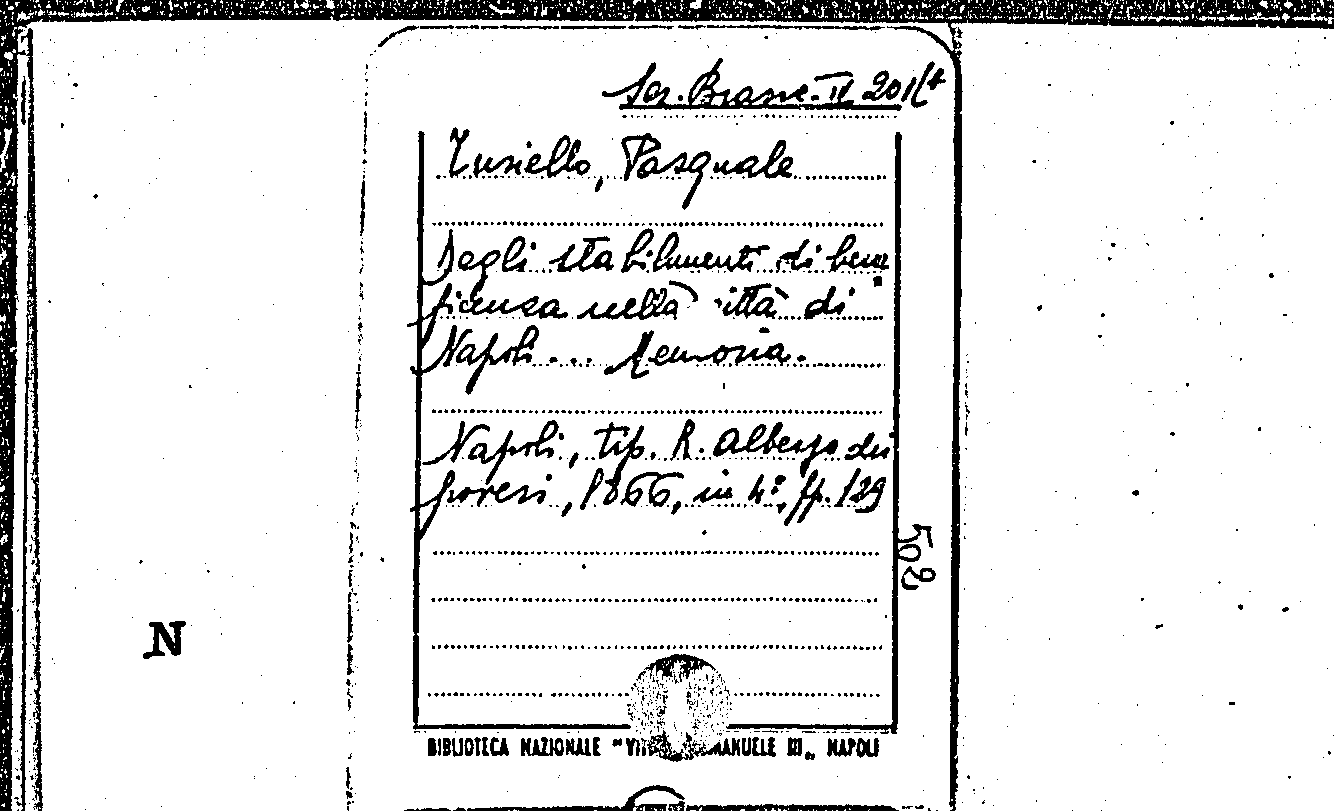 Scr. Branc. II 201(4
Tusiello, Pasquale
Degli stabilimenti di bene
ficenza nella città di
Napoli... Memoria.
Napoli, tip. R. Albergo dei
poveri, 1866, in 4º, pp. 129
508
N
BIBLIOTECA NAZIONALE "VIT EMANUELE III„ NAPOLI